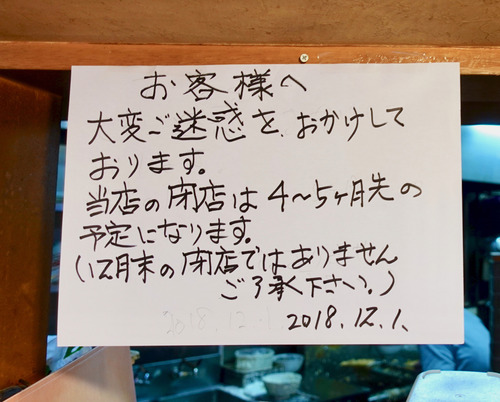 お客様へ
大変ご迷惑を、おかけして
おります。
当店の閉店は4〜5ヶ月先の
予定になります。
(12月末の閉店ではありません
ご了承下さい。)
2018.12.1.
2018.12.1